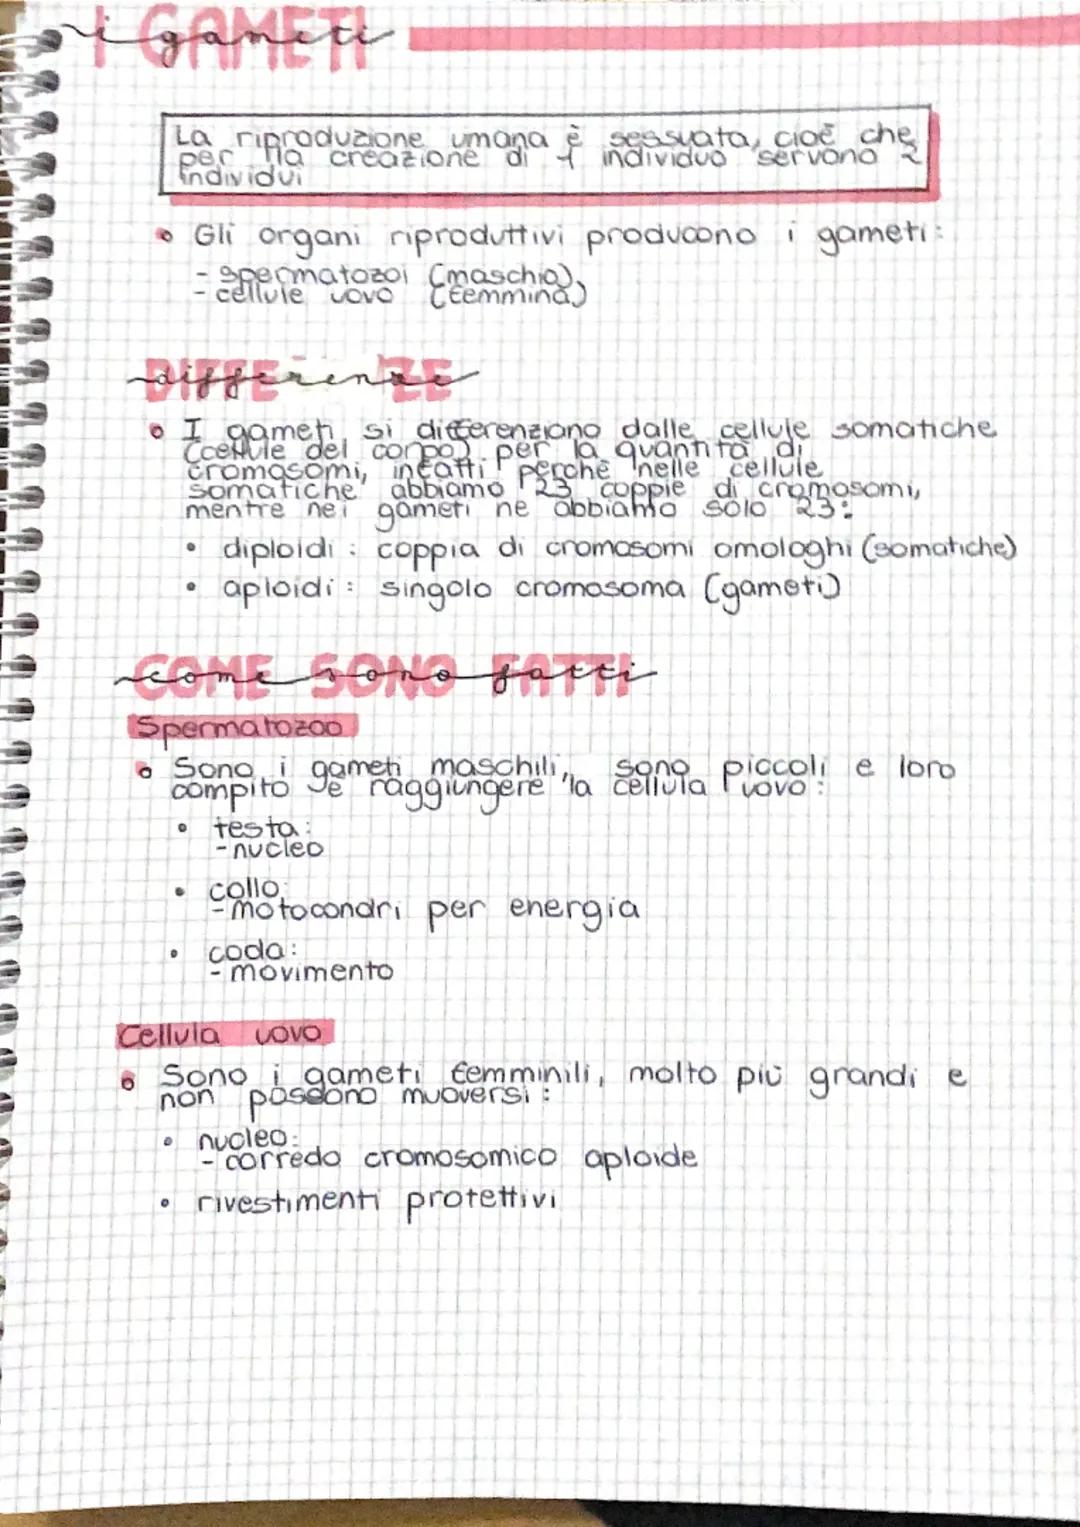 i GAMETI
La riproduzione umana è sessuata, cioè che
per la creazione di 1 individuo servono 2
individui
Gli organi riproduttivi producono i gameti:
- spermatozoi (maschio)
- cellule uovo (femmina)
DIFFERENZE
I gameti si differenziano dalle cellule somatiche
(cellule del corpo) per la quantità di
cromosomi, infatti perchè nelle cellule
somatiche abbiamo 23 coppie di cromosomi,
mentre nei gameti ne abbiamo solo 23:
• diploidi: coppia di cromosomi omologhi (somatiche)
• aploidi: singolo cromosoma (gameti)
COME SONO FATTI
Spermatozoo
Sono i gameti maschili, sono piccoli e loro
compito è raggiungere la cellula uovo:
• testa:
- nucleo
• collo:
- motocondri per energia
• coda:
- movimento
Cellula uovo
Sono i gameti femminili, molto più grandi e
non possono muoversi:
• nucleo:
- corredo cromosomico aploide
• rivestimenti protettivi